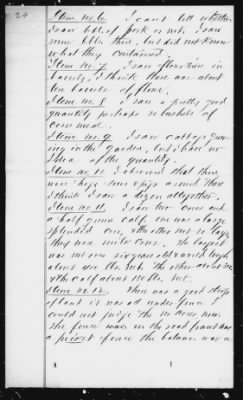 24
Item no. 6 I can't tell whether
I saw bbl. of pork or not. I saw
some bbls there, but did not know
what they contained.
Item no. 7 I saw flour &c in
barrels, I think there was about
ten barrels of flour.
Item no. 8 I saw a pretty good
quantity perhaps 50 bushels of
corn meal.
Item no. 9 I saw cabbage grow-
ing in the garden, but I have no
Idea of the quantity.
Item no. 10 I observed that there
were hogs, some pigs around there
I think I saw a dozen altogether.
Item no. 11 I saw two cows and
a half grown calf, one was a large
splendid cow, & the other not so large
they were milk cows. The largest
was not over six years old & would weigh
about 400 lbs. net. The other about
& the calf about lbs. net.
Item no. 12. There was a good deal
of land it was all under fence I
could not judge the no. acres near
the fence was on the road front was
a picket fence the balance was a